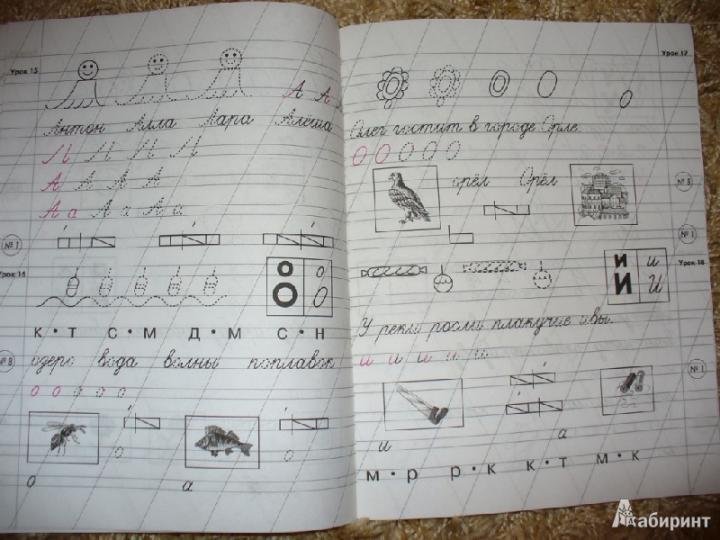 Урок 15
А А
Антон Алла Лара Алёша
Л Л Л Л
А А А А
А а А а А а
№ 1
Урок 16
о о
О О
К • Т С • М Д • М С • Н
№ 8
озеро вода волны поплавок
о о о о о
о о
о а
Урок 17
О
Олег гостит в городе Орле.
О О О О О
№ 8
орёл Орёл
№ 1
Урок 18
и и
И И
У реки росли плакучие ивы.
и и и и и
№ 1
и а
М • Р Р • К К • Т М • К
Лабиринт